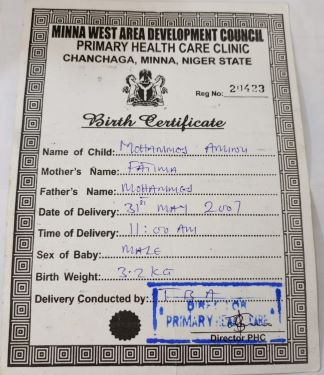 MINNA WEST AREA DEVELOPMENT COUNCIL
PRIMARY HEALTH CARE CLINIC
CHANCHAGA, MINNA, NIGER STATE
Reg No: 20423
Birth Certificate
Name of Child: MOHAMMED AMINU
Mother's Name: FATIMA
Father's Name: MOHAMMED
Date of Delivery: 31st MAY 2007
Time of Delivery: 11:00 AM
Sex of Baby: MALE
Birth Weight: 3.2 KG
Delivery Conducted by: T B A
PRIMARY HEALTH CARE
Director PHC